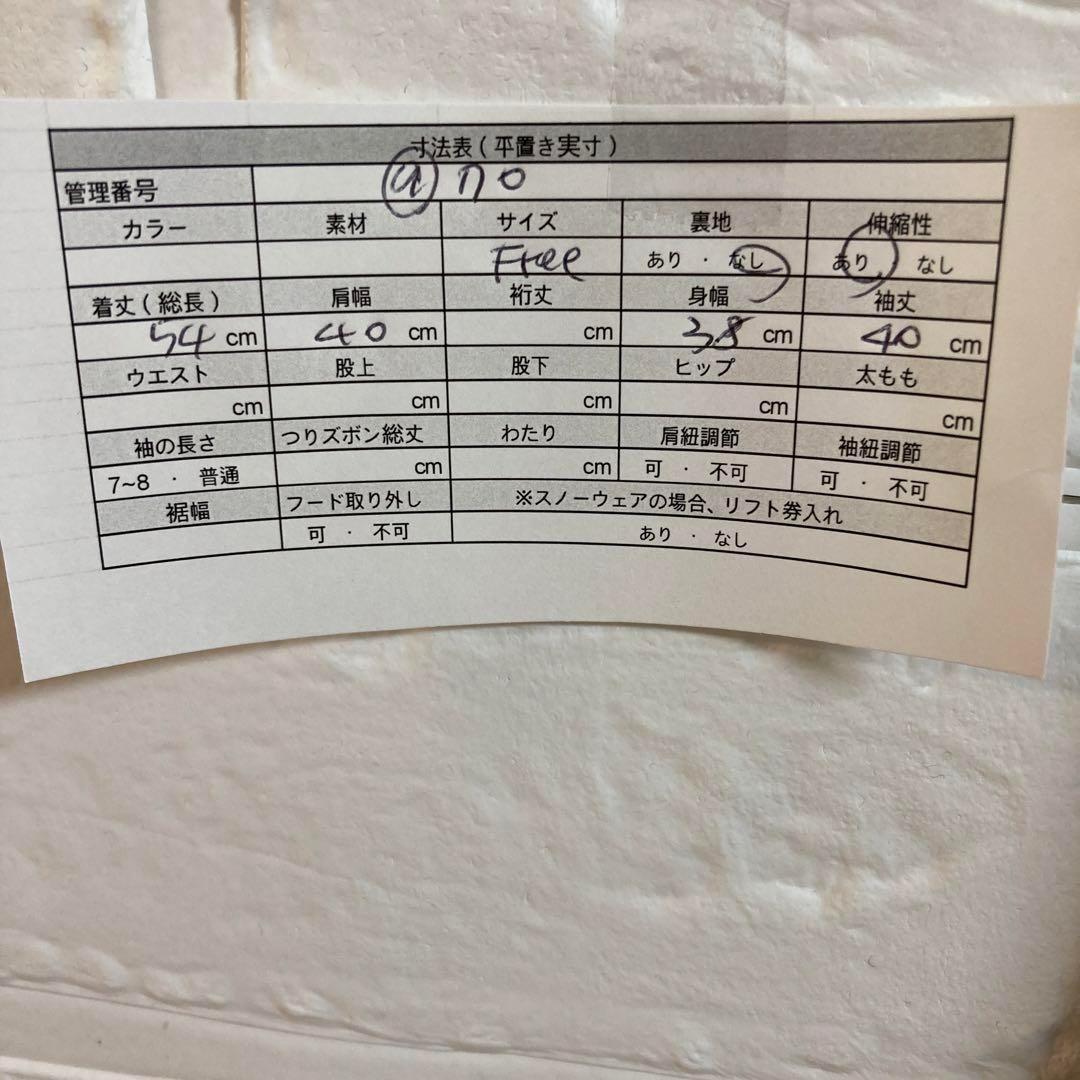 寸法表(平置き実寸)
管理番号 ⓐ 170
カラー 素材 サイズ 裏地 伸縮性
Free あり・なし あり なし
着丈(総長) 肩幅 裄丈 身幅 袖丈
54 cm 40 cm cm 38 cm 40 cm
ウエスト 股上 股下 ヒップ 太もも
cm cm cm cm cm
袖の長さ つりズボン総丈 わたり 肩紐調節 袖紐調節
7~8 ・ 普通 cm cm 可 ・ 不可 可 ・ 不可
裾幅 フード取り外し ※スノーウェアの場合、リフト券入れ
可 ・ 不可 あり ・ なし